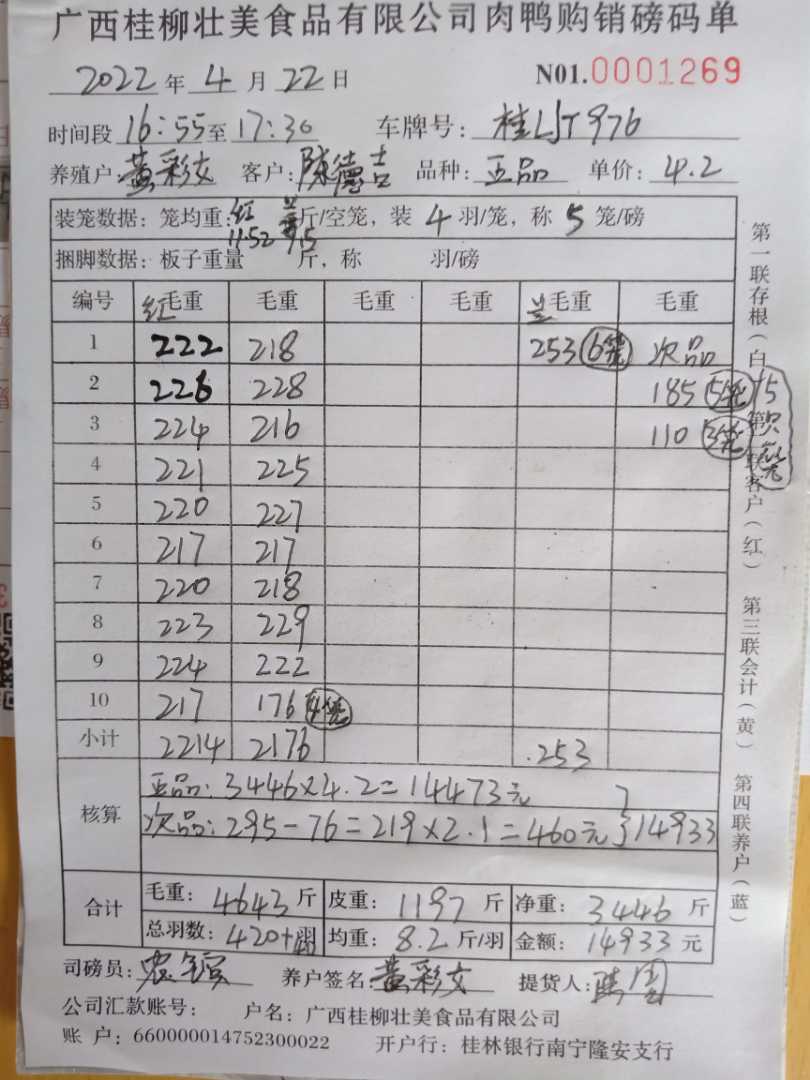 广西桂柳壮美食品有限公司肉鸭购销磅码单
2022年4月22日 N01.0001269
时间段16:55至17:30 车牌号:桂LJT976
养殖户:黄彩文 客户:陈德吉 品种:正品 单价:4.2
装笼数据:笼均重:红11.52 兰9.5斤/空笼,装4羽/笼,称5笼/磅
捆脚数据:板子重量 斤,称 羽/磅
编号 红毛重 毛重 毛重 毛重 兰毛重 毛重
1 222 218 253 6笼 次品
2 226 228 185 5笼
3 224 216 110 3笼
4 221 225
5 220 227
6 217 217
7 220 218
8 223 229
9 224 222
10 217 176 4笼
小计 2214 2176 .253
核算 正品:3446×4.2=14473元
次品:295-76=219×2.1=460元 }14933
合计 毛重:4643斤 皮重:1197斤 净重:3446斤
总羽数:420+羽 均重:8.2斤/羽 金额:14933元
司磅员: 养户签名:黄彩文 提货人:
公司汇款账号: 户名:广西桂柳壮美食品有限公司
账 户:660000014752300022 开户行:桂林银行南宁隆安支行
第一联存根(白 联客户(红) 第三联会计(黄) 第四联养户(蓝)
15只